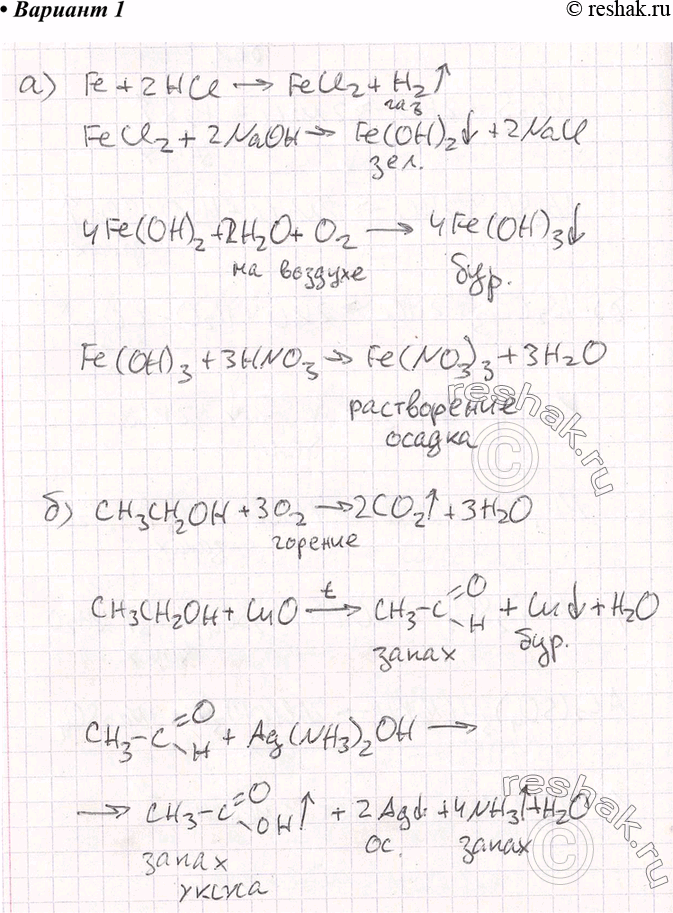 • Вариант 1
© reshak.ru
а) Fe + 2HCl → FeCl₂ + H₂↑
газ
FeCl₂ + 2NaOH → Fe(OH)₂↓ + 2NaCl
зел.
4Fe(OH)₂ + 2H₂O + O₂ → 4Fe(OH)₃↓
на воздухе бур.
Fe(OH)₃ + 3HNO₃ → Fe(NO₃)₃ + 3H₂O
растворение
осадка
б) CH₃CH₂OH + 3O₂ → 2CO₂↑ + 3H₂O
горение
CH₃CH₂OH + CuO →t CH₃-C=O-H + Cu↓ + H₂O
запах бур.
CH₃-C=O-H + Ag(NH₃)₂OH →
→ CH₃-C=O-OH↑ + 2Ag↓ + 4NH₃↑ + H₂O
запах ос. запах
уксуса
reshak.ru
©
reshak.ru
©